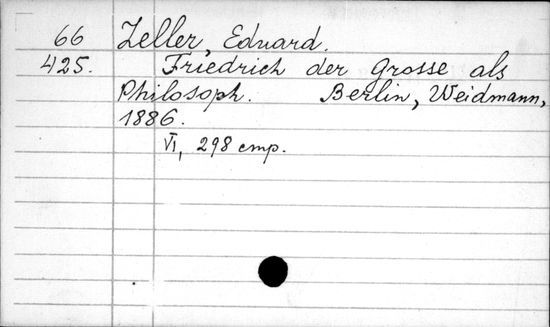 66 Zeller, Eduard.
425. Friedrich der Grosse als
Philosoph. Berlin, Weidmann,
1886.
VI, 298 стр.